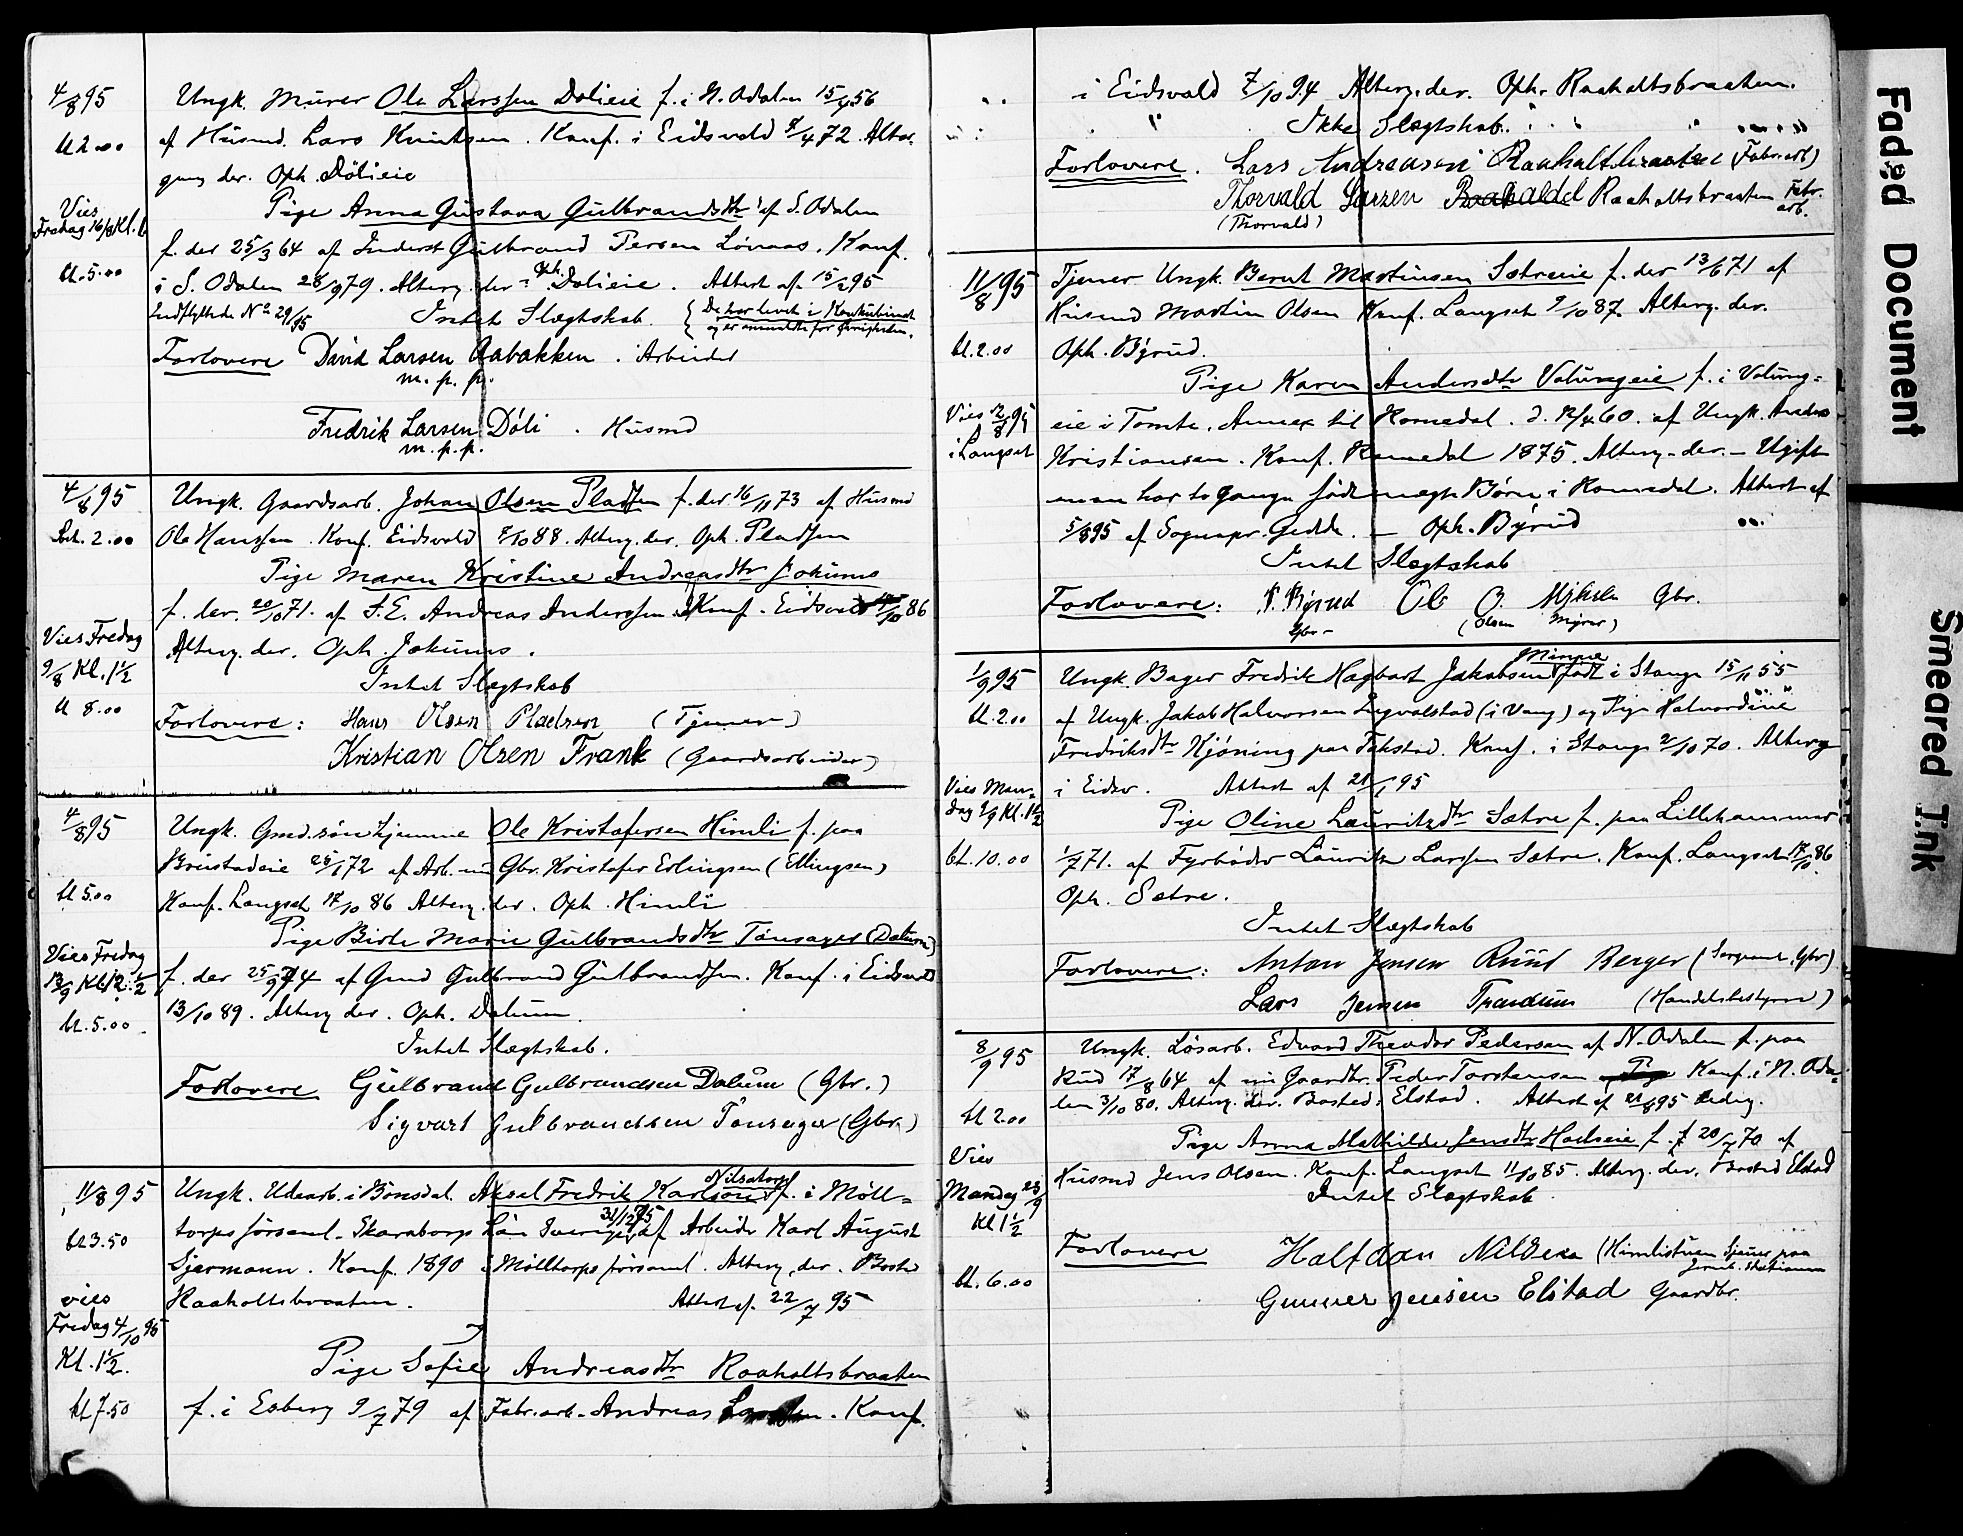 4/8 95 Ungk. Murer Ole Larssen Dølieie f. i N. Odalen 15/4 56
bl 2.00 af Husmd. Lars Knutsen. Konf. i Eidsvold 7/4 72. Alter-
gang der. Oph. Dölieie
Vies Fredag 16/8 Kl. 6 Pige Anna Gustava Gulbrandsdtr af S. Odalen
f. der 25/3 64 af Inderst Gulbrand Persen Lønaas. Konf.
bl. 5.00 i S. Odalen 28/9 79. Alterg. der. Oph. Dølieie. Attest af 15/2 95
Indflyttede No 29/95 Intet Slægtskab. {De har levet i Konkubinat
og er anmeldte for Øvrigheden.
Forlovere David Larsen Aabakken. Arbeider
m. p. p.
Fredrik Larsen Döli. Husmd
m. p. p.
4/8 95 Ungk. Gaardsarb. Johan Olsen Pladsen f. der 16/11 73 af Husmd
bet. 2.00 Ole Hanssen. Konf. Eidsvold 7/10 88. Alterg. der. Oph. Pladsen
Pige Maren Kristine Andreasdtr Jokums
f. der. 20/10 71. af F.E. Andreas Anderssen. Konf. Eidsvold /10 86
Vies Fredag 9/8 Kl. 1½ Alterg. der. Oph. Jokums.
Intet Slægtskab
bl 8.00 Forlovere: Hans Olsen Pladsen (Tjener)
Kristian Olsen Frank (Gaardsarbeider)
4/8 95 Ungk. Gmd. søn hjemme Ole Kristofersen Himli f. paa
Brustadeie 25/1 72 af Arb. nu Gbr. Kristofer Erlingsen (Ellingsen)
bl 5.00 Konf. Langset 17/10 86 Alterg. der. Oph. Himli
Pige Birte Marie Gulbrandsdtr Tønsager (Dalum)
Vies Fredag 13/9 Kl 12½ f. der 25/9 74 af Gmd Gulbrand Gulbrandsen. Konf. i Eidsvold
bl. 5.00 13/10 89. Alterg der. Oph. Dalum.
Intet Slægtskab.
Forlovere Gulbrand Gulbrandsen Dalum (Gbr.)
Sigvart Gulbrandsen Tönsager (Gbr.)
11/8 95 Ungk. Udearb. i Bönsdal Aksel Fredrik Karlson Nilsatorp f. i Möll-
bl 3.50 torps församl. Skaraborgs Län Sverige, 31/12 75 af Arbeider Karl August
Sjermann. Konf. 1890 i Mölltorps församl. Alterg. der. Bosted
vies Raaholtsbraaten. Attest af. 22/7 95
Fredag 4/10 95
Kl. 1½. Pige Sofie Andreasdtr Raaholtsbraaten
bl 7.50 f. i Esberg 9/7 79 af Fabr. arb. Andreas Larsen. Konf.
i Eidsvold 7/10 94 Alterg. der. Oph. Raaholtsbraaten.
Ikke Slægtskab.
Forlovere. Lars Andreasen Raaholtbraaten (Fabr. arb)
Thorvald Larsen Raaholtsbraaten Fabr. arb.
(Thorvald)
11/8 95 Tjener Ungk. Bernt Martinsen Sætreeie f. der 13/6 71 af
Husmd Martin Olsen Konf. Langset 9/10 87. Alterg. der.
bl. 2.00 Oph. Byrud.
Pige Karen Andersdtr Valungeie f. i Valung-
Vies 12/8 95 i Langset eie i Tomte. Annex til Romedal. d. 12/4 60. af Ungk. Anders
Kristiansen. Konf. Romedal 1875. Alterg. der. – Ugift
men har to gange födt uægte Børn i Romedal. Attest af
5/8 95 af Sognepr. Gedde. – Oph. Byrud
Intet Slægtskab
Forlovere: P. Byrud Ole O. Myhrer Gbr.
Gbr – (Olsen Myrer)
1/9 95 Ungk. Bager Fredrik Hagbart Jakobsen Minne født i Stange 15/11 55
bl. 2.00 af Ungk. Jakob Halvorsen Lysvolstad (i Vang) og Pige Halvordine
Fredriksdtr Hjöning paa Takstad. Konf. i Stange 2/10 70. Alterg
Vies Man- dag 9/9 Kl. 1½ i Eidsv. Attest af 21/1 95
Pige Oline Lauritzdtr Sætre f. paa Lillehammer
bl. 10.00 1/7 71. af Fyrbøder Lauritz Larsen Sætre. Konf. Langset 17/10 86
Oph. Sætre.
Intet Slægtskab
Forlovere: Anton Jensen Ruud Berger (Sergeant, Gbr)
Lars Jensen Trandum (Handelsbestyrer)
8/9 95 Ungk. Løsarb. Edvard Theodor Pedersen af N. Odalen f. paa
Rud 17/8 64 af nu Gaardbr. Peder Torstensen Konf. i N. Oda-
bl 2.00 len 3/10 80. Alterg. der. Bosted. Elstad. Attest af 21/8 95 ledig.
Vies Pige Anna Mathilde Jensdtr Hoelseie f. f 20/7 70. af
Mandag 23/9 Husmd Jens Olsen. Konf. Langset 11/10 85. Alterg. der. Bosted Elstad
Kl 1½ Intet Slægtskab.
Forlovere Halfdan Nilsen (Himlistuen Tjener paa
Jernb. Stationen
bl. 6.00 Gunner Jensen Elstad Gaardbr.
Faded Document
Smeared Ink